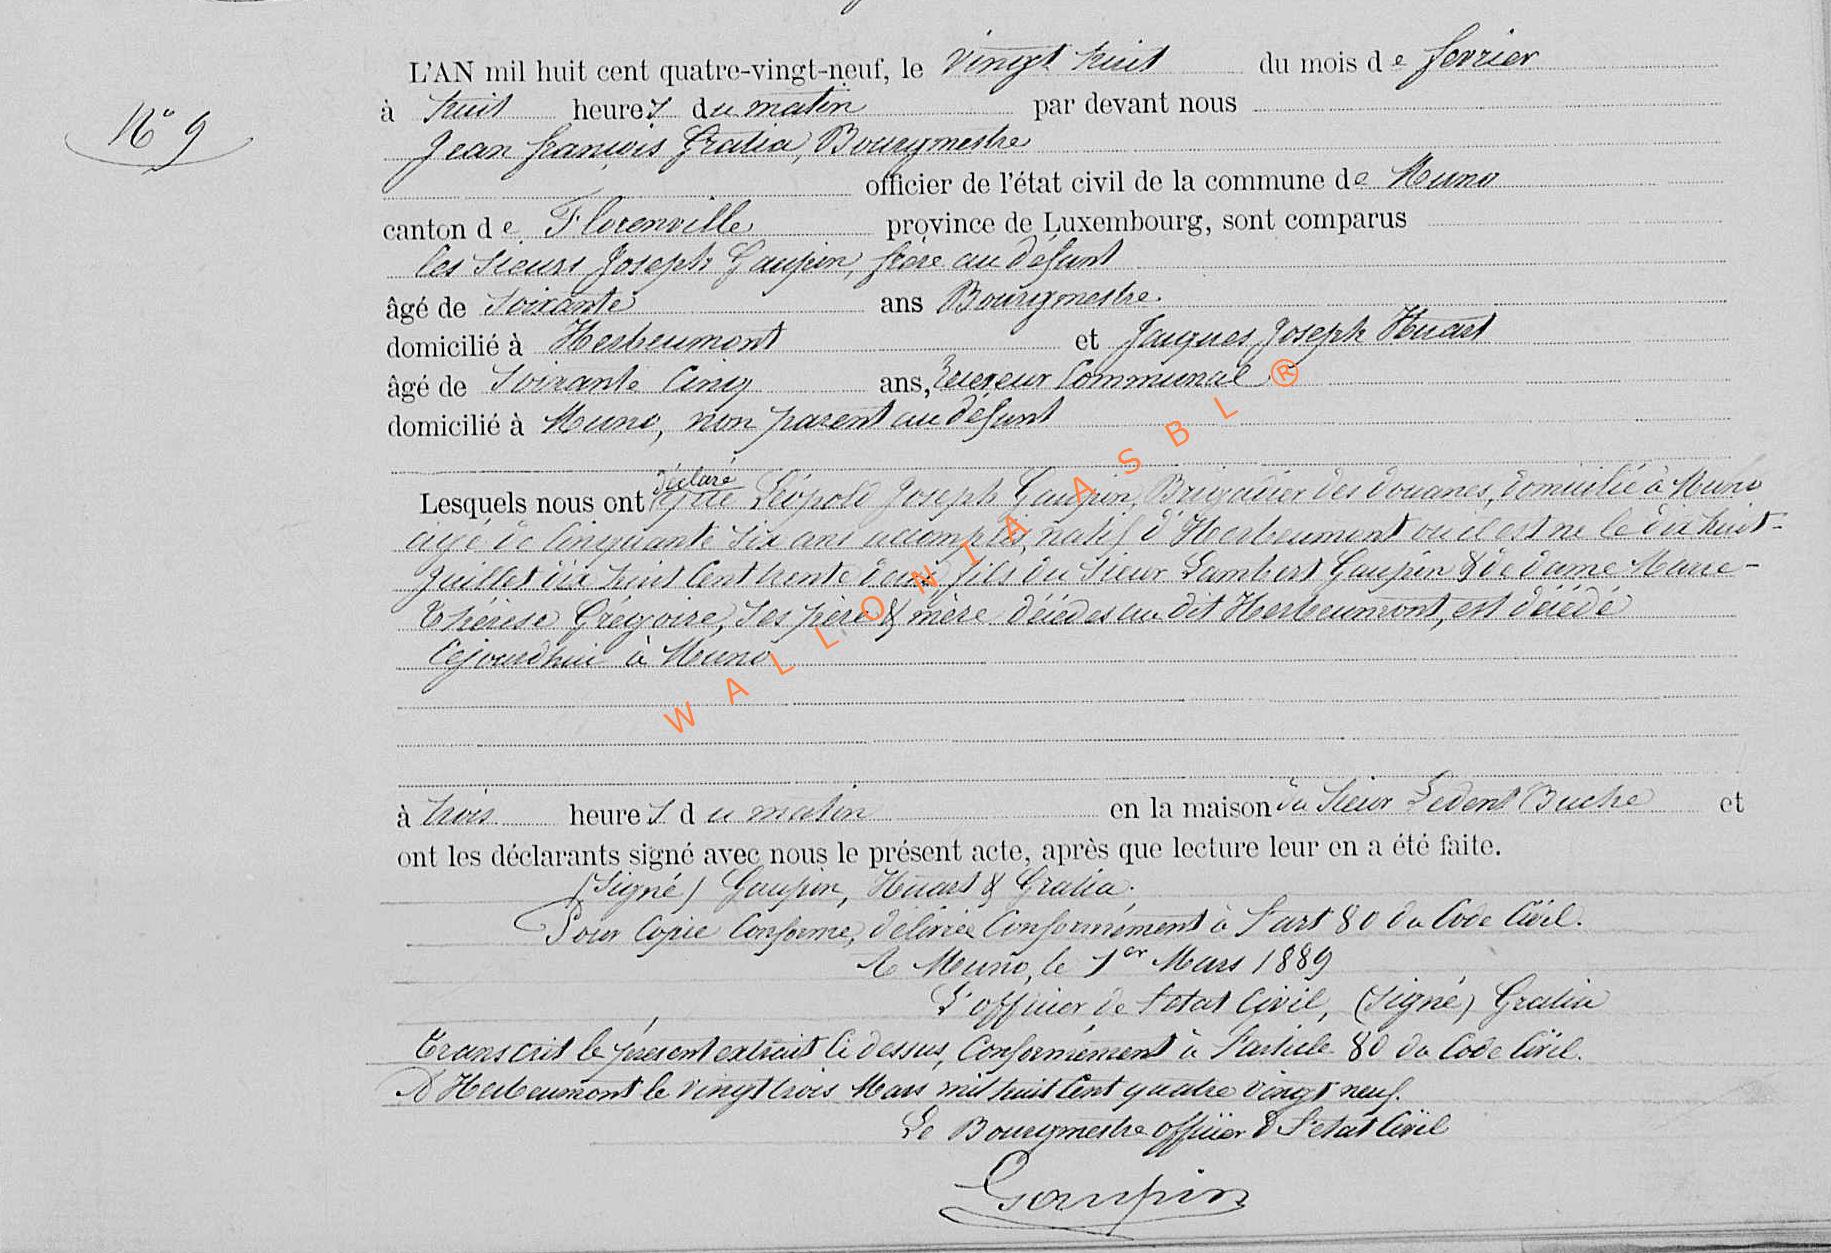 L'AN mil huit cent quatre-vingt-neuf, le vingt huit du mois de fevrier
N° 9
à huit heures du matin par devant nous
Jean françois Gratia, Bourgmestre
officier de l'état civil de la commune de Muno
canton de Florenville province de Luxembourg, sont comparus
les sieurs Joseph Gaupin, frère au défunt
âgé de soixante ans Bourgmestre.
domicilié à Herbeumont et Jacques Joseph Huart
âgé de soixante cinq ans, Receveur Communal
domicilié à Muno, non parent au défunt
Lesquels nous ont déclaré que Léopold Joseph Gaupin, Brigadier des douanes, domicilié à Muno
agé de cinquante six ans accomplis, natif d'Herbeumont où il est né le dix huit-
Juillet dix huit cent trente deux fils du sieur Lambert Gaupin & de dame Marie-
Thérèse Grégoire, ses père & mère décédés au dit Herbeumont, est décédé
cejourd'hui à Muno
à trois heures du matin en la maison du sieur Ledent Buche et
ont les déclarants signé avec nous le présent acte, après que lecture leur en a été faite.
(Signé) Gaupin, Huart & Gratia.
Pour Copie Conforme, délivrée Conformément à l'art 80 du Code Civil.
A Muno, le 1er Mars 1889
L'officier de l'etat Civil, (signé) Gratia
Transcrit le présent extrait ci dessus, Conformément à l'article 80 du Code Civil.
A Herbeumont le vingt trois Mars mil huit cent quatre vingt neuf.
Le Bourgmestre officier d l'etat Civil
Gaupin
WALLONIA ASBL ®